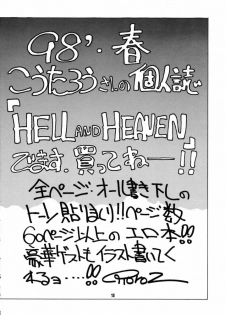 98'・春
こうたろうさんの個人誌
『HELL AND HEAVEN』
でます.買ってねー!!
全ページ・オール書き下しの
トーン貼りまくり!!ページ数
60ページ以上のエロ本!!
豪華ゲストもイラスト書いてく
れるヨ…!!